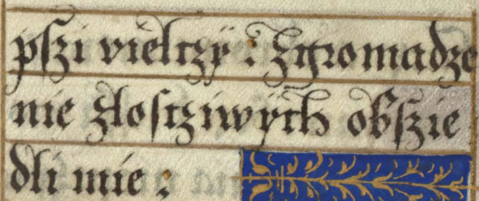 pſzi vielczÿ : Zgromadze
nie zloſcziwych obſzie
dli mie :